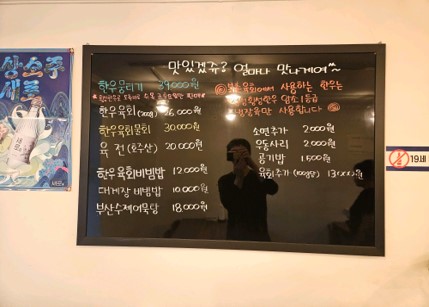 상쾌주
새로
맛있겠쥬? 얼마나 맛나게여~
한우뭉티기 39,000원
한우육회(200g) 26,000원
한우육회물회 30,000원
육전(호주산) 20,000원
한우육회비빔밥 12,000원
대게장비빔밥 10,000원
부산수제어묵탕 18,000원
사용하는 한우는
암소 1등급
사용합니다
소면추가 2,000원
우동사리 2,000원
공기밥 1,500원
육회추가(100g당) 13,000원
19세